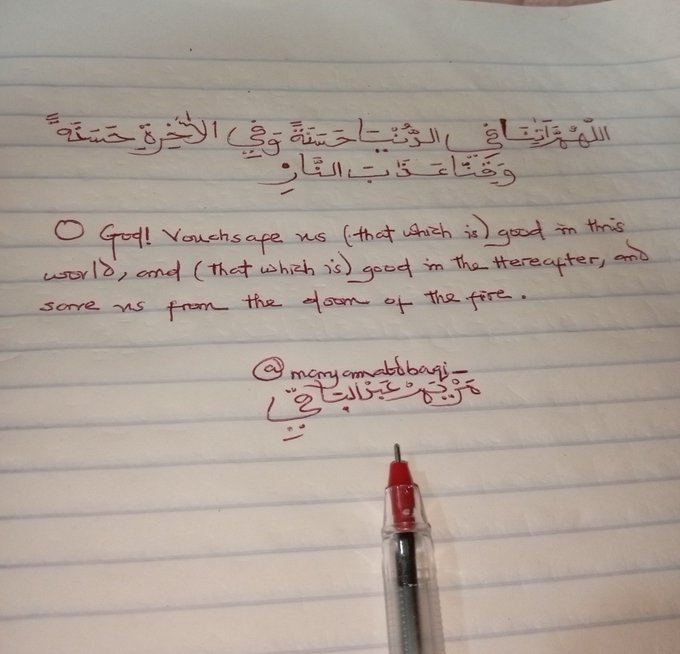 اللَّهُمَّ آتِنَا فِي الدُّنْيَا حَسَنَةً وَفِي الْآخِرَةِ حَسَنَةً
وَقِنَا عَذَابَ النَّارِ
O God! Vouchsafe us (that which is) good in this
world, and (that which is) good in the Hereafter, and
save us from the doom of the fire.
@maryamabdbaqi_
مَرْيَمْ عَبْدُ الْبَاقِي